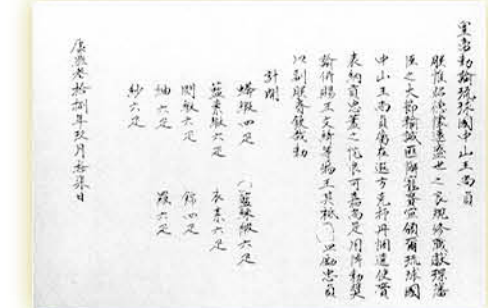 皇帝勅諭琉球國中山王尚貞
朕惟昭德懷遠盛世之良規修職獻琛藩
臣之大節輸誠匪懈寵賚宜頒爾琉球國
中山王尚貞屬在遐方克抒丹悃遣使賫
表納貢忠藎之忱良可嘉尚是用降勅獎
諭併賜王文綺等物王其祗 益勵忠貞
以副朕眷欽哉勅
計開
蟒緞四疋 藍緞六疋
藍素緞六疋 衣素六疋
閃緞六疋 錦四疋
紬六疋 羅六疋
紗六疋
康熙叁拾捌年玖月拾柒日